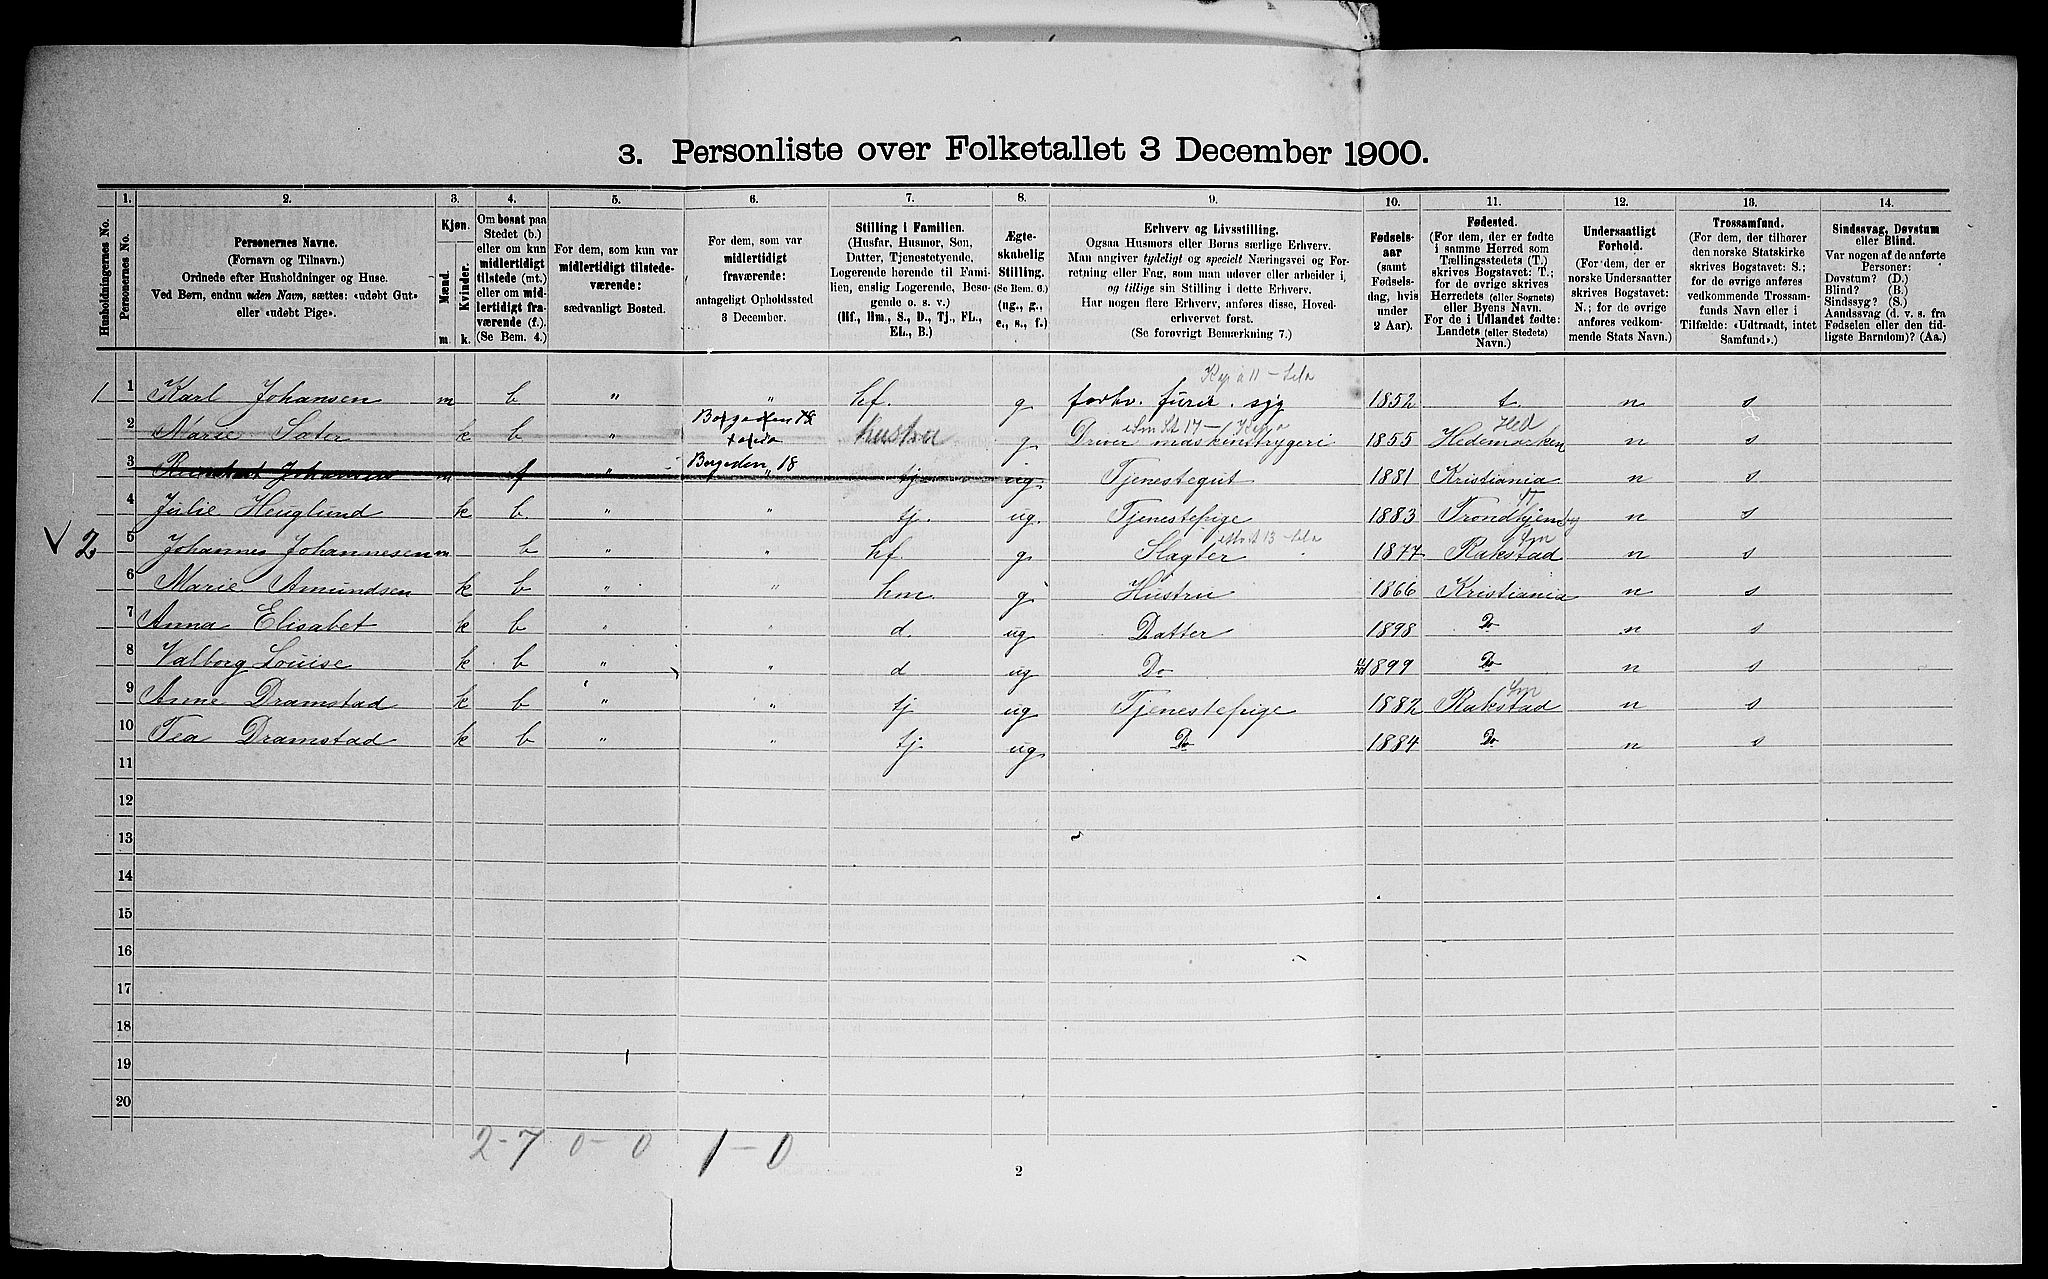 3. Personliste over Folketallet 3 December 1900.
Husholdningernes No.
1.
Personernes No.
2.
Personernes Navne.
(Fornavn og Tilnavn.)
Ordnede efter Husholdninger og Huse.
Ved Børn, endnu uden Navn, sættes: «udøbt Gut»
eller «udøbt Pige».
3.
Kjøn.
Mænd.
Kvinder.
m. k.
4.
Om bosat paa
Stedet (b.)
eller om kun
midlertidigt
tilstede (mt.)
eller om mid-
lertidigt fra-
værende (f.).
(Se Bem. 4.)
5.
For dem, som kun var
midlertidigt tilstede-
værende:
sædvanligt Bosted.
6.
For dem, som var
midlertidigt
fraværende:
antageligt Opholdssted
3 December.
7.
Stilling i Familien.
(Husfar, Husmor, Søn,
Datter, Tjenestetyende,
Logerende hørende til Fami-
lien, enslig Logerende, Besø-
gende o. s. v.)
(Hf., Hm., S., D., Tj., FL.,
EL., B.)
8.
Ægte-
skabelig
Stilling.
(Se Bem. 6.)
(ug., g.,
e., s., f.)
9.
Erhverv og Livsstilling.
Ogsaa Husmors eller Børns særlige Erhverv.
Man angiver tydeligt og specielt Næringsvei og For-
retning eller Fag, som man udøver eller arbeider i,
og tillige sin Stilling i dette Erhverv.
Har nogen flere Erhverv, anføres disse, Hoved-
erhvervet først.
(Se forøvrigt Bemærkning 7.)
10.
Fødsels-
aar
(samt
Fødsels-
dag, hvis
under
2 Aar).
11.
Fødested.
(For dem, der er fødte
i samme Herred som
Tællingsstedets (T.)
skrives Bogstavet: T.;
for de øvrige skrives
Herredets (eller Sognets)
eller Byens Navn.
For de i Udlandet fødte:
Landets (eller Stedets)
Navn.)
12.
Undersaatligt
Forhold.
(For dem, der er
norske Undersaatter
skrives Bogstavet:
N.; for de øvrige
anføres vedkom-
mende Stats Navn.)
13.
Trossamfund.
(For dem, der tilhører
den norske Statskirke
skrives Bogstavet: S.;
for de øvrige anføres
vedkommende Trossam-
funds Navn eller i
Tilfælde: «Udtraadt, intet
Samfund».)
14.
Sindssvag, Døvstum
eller Blind.
Var nogen af de anførte
Personer:
Døvstum? (D.)
Blind? (B.)
Sindssyg? (S.)
Aandssvag (d. v. s. fra
Fødselen eller den tid-
ligste Barndom)? (Aa.)
1 1 Karl Johansen m b " " hf. g forhv. furer. syg 1852 t. n s
2 Marie Sæter k b " hustru g Driver maskinstrygeri 1855 Hedemarken n s
Hed
3 Johansen m f " Borgeden 18 tj ug Tjenestegut 1881 Kristiania n s
4 Julie Heuglund k b. " " tj. ug. Tjenestepige 1883 Trondhjem by n s
2 5 Johannes Johannesen m b " " hf. g. Slagter 1877 Rakstad n s
6 Marie Amundsen k b " " hm. g Hustru 1866 Kristiania n s
7 Anna Elisabet k b " " d. ug Datter 1898 Do n s
8 Valborg Louise k b " " d ug Do 1899 Do n s
9 Anne Dramstad k b " " tj ug Tjenestepige 1882 Rakstad n s
10 Tea Dramstad k b " " tj. ug Do 1884 Do n s
11
12
13
14
15
16
17
18
19
20
2-7 0-0 1-0
2